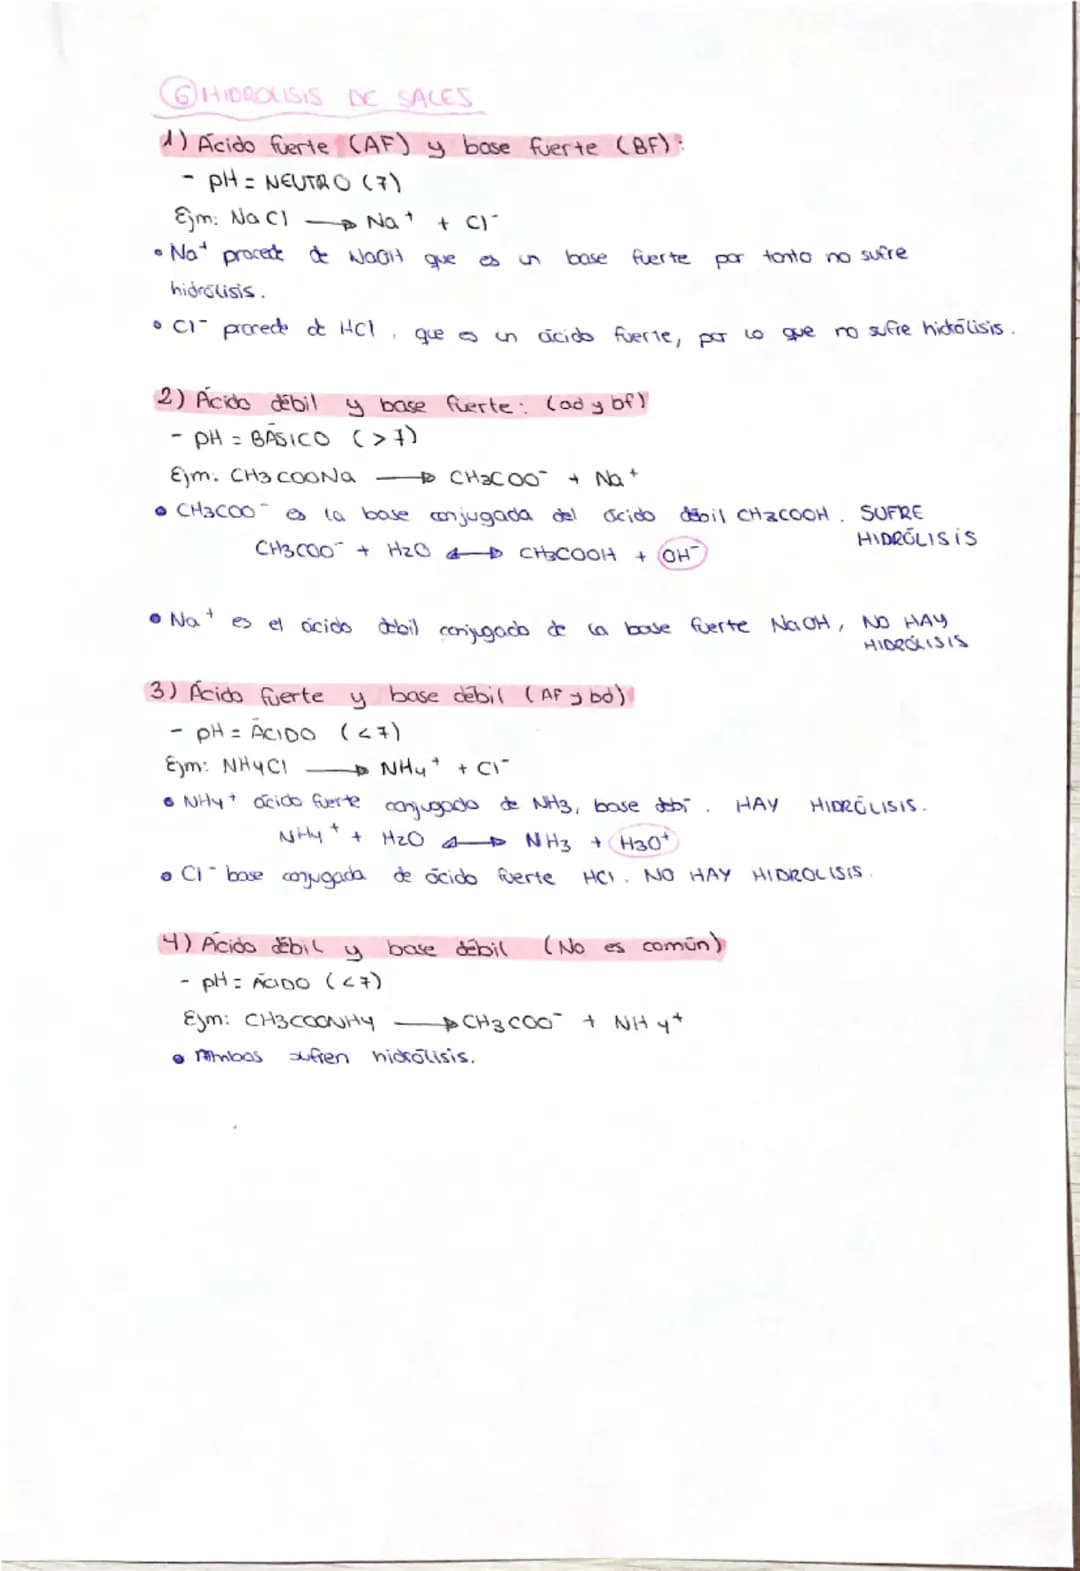 6 HIDROLISIS DE SALES
1) Ácido fuerte (AF) y base fuerte (BF):
- pH = NEUTRO (7)
Ejm: NaCl → Na⁺ + Cl⁻
• Na⁺ procede de NaOH que es un base fuerte por tanto no sufre
hidrólisis.
• Cl⁻ procede de HCl, que es un ácido fuerte, por lo que no sufre hidrólisis.
2) Ácido débil y base fuerte: (ad y bf)
- pH = BÁSICO (>7)
Ejm: CH3COONa → CH3COO⁻ + Na⁺
• CH3COO⁻ es la base conjugada del ácido débil CH3COOH. SUFRE
HIDRÓLISIS
CH3COO⁻ + H2O ↔ CH3COOH + OH⁻
• Na⁺ es el ácido débil conjugado de la base fuerte NaOH, NO HAY
HIDRÓLISIS
3) Ácido fuerte y base débil (AF y bd)
- pH = ÁCIDO (<7)
Ejm: NH4Cl → NH4⁺ + Cl⁻
• NH4⁺ ácido fuerte conjugado de NH3, base débi. HAY HIDRÓLISIS.
NH4⁺ + H2O ↔ NH3 + H3O⁺
• Cl⁻ base conjugada de ácido fuerte HCl. NO HAY HIDROLISIS.
4) Ácido débil y base débil (No es común)
- pH = ÁCIDO (<7)
Ejm: CH3COONH4 → CH3COO⁻ + NH4⁺
• Ambas sufren hidrólisis.